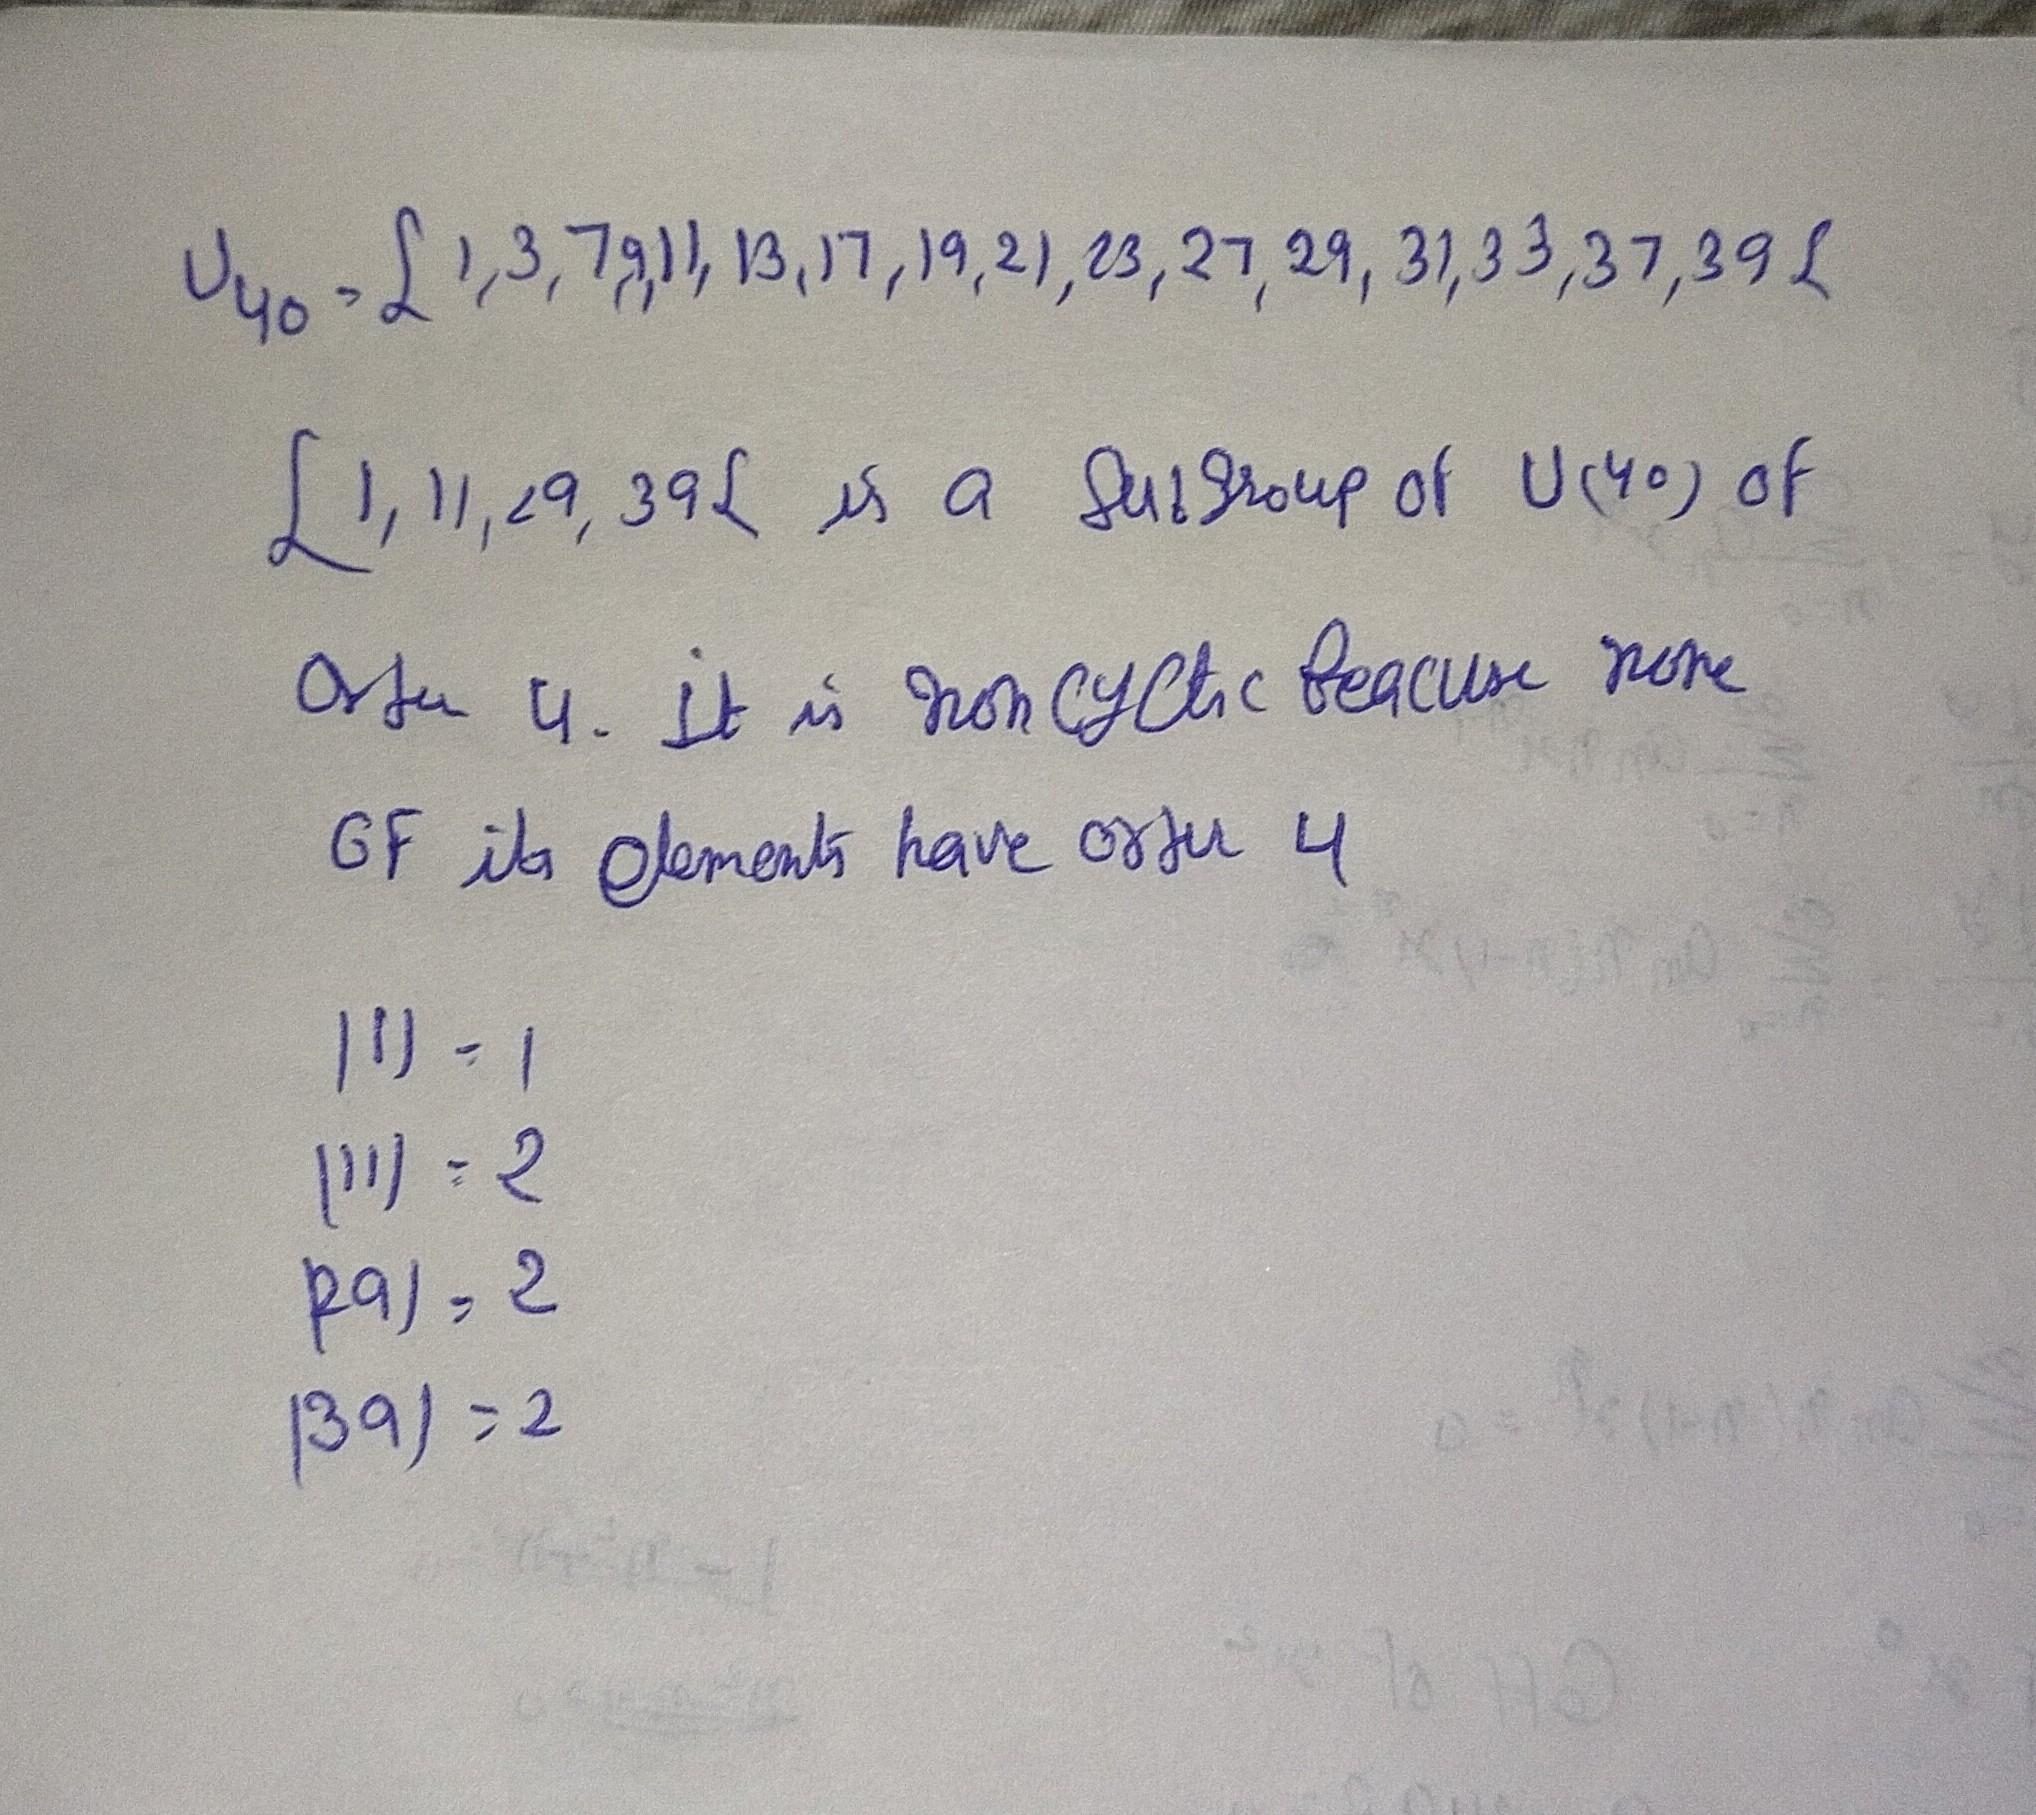 U40 = {1,3,7,9,11,13,17,19,21,23,27,29,31,33,37,39}
{1,11,29,39} is a Subgroup of U(40) of
Order 4. It is non cyclic beacuse none
OF its elements have order 4
|1| = 1
|11| = 2
|29| = 2
|39| = 2